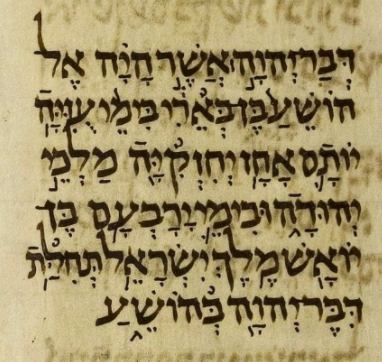 דְּבַר יְהוָה אֲשֶׁר הָיָה אֶל
הוֹשֵׁעַ בֶּן בְּאֵרִי בִּימֵי עֻזִּיָּה
יוֹתָם אָחָז יְחִזְקִיָּה מַלְכֵי
יְהוּדָה וּבִימֵי יָרָבְעָם בֶּן
יוֹאָשׁ מֶלֶךְ יִשְׂרָאֵל תְּחִלַּת
דִּבֶּר יְהוָה בְּהוֹשֵׁעַ